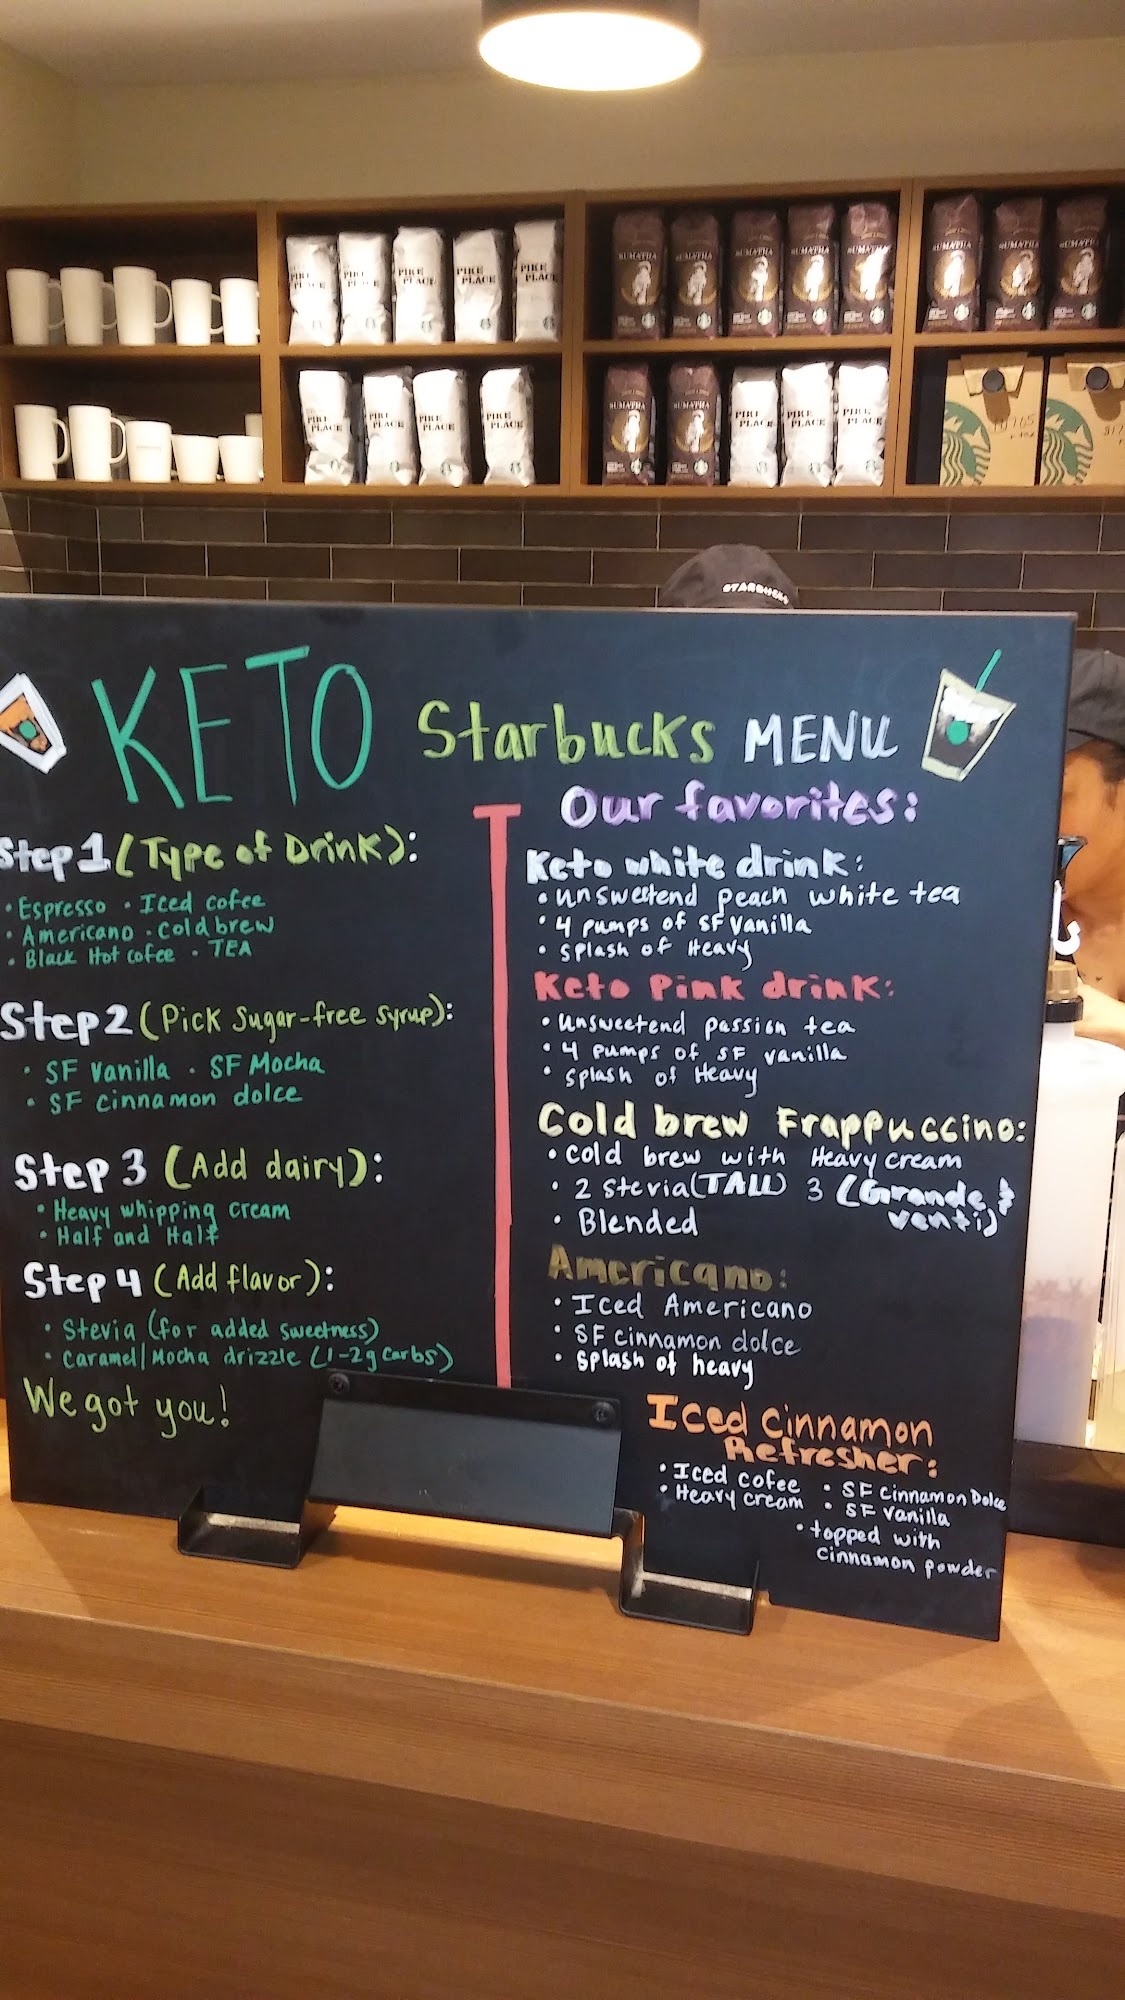 PIKE PLACE
PIKE PLACE
PIKE PLACE
PIKE PLACE
PIKE PLACE
SUMATRA
SUMATRA
SUMATRA
SUMATRA
SUMATRA
SUMATRA
SUMATRA
SUMATRA
PIKE PLACE
PIKE PLACE
PIKE PLACE
PIKE PLACE
SUMATRA
SUMATRA
PIKE PLACE
PIKE PLACE
PIKE PLACE
STARBUCKS
KETO Starbucks MENU
Step 1 (Type of Drink):
• Espresso • Iced cofee
• Americano • Cold brew
• Black Hot cofee • TEA
Step 2 (Pick Sugar-free syrup):
• SF vanilla • SF Mocha
• SF cinnamon dolce
Step 3 (Add dairy):
• Heavy whipping cream
• Half and Half
Step 4 (Add flavor):
• Stevia (for added sweetness)
• Caramel/Mocha drizzle (1-2g carbs)
We got you!
Our favorites:
Keto white drink:
• unsweetend peach white tea
• 4 pumps of SF vanilla
• splash of Heavy
Keto Pink drink:
• unsweetend passion tea
• 4 pumps of SF vanilla
• splash of Heavy
Cold brew Frappuccino:
• cold brew with Heavy cream
• 2 stevia (TALL) 3 (Grande &
venti)
• Blended
Americano:
• Iced Americano
• SF cinnamon dolce
• splash of heavy
Iced Cinnamon
Refresher:
• Iced cofee • SF cinnamon Dolce
• Heavy cream • SF vanilla
• topped with
cinnamon powder